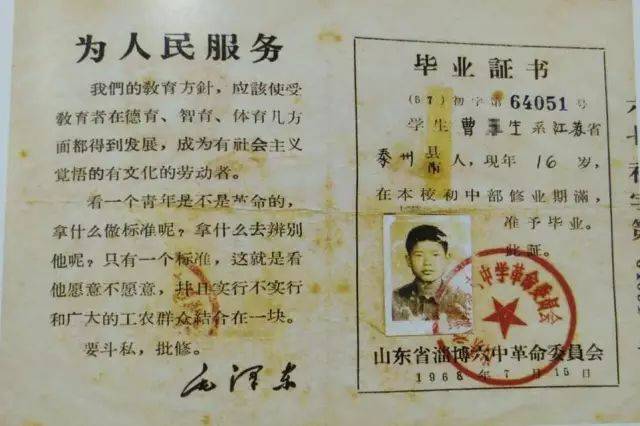 为人民服务
我們的教育方針，应該使受
教育者在德育、智育、体育几方
面都得到发展，成为有社会主义
觉悟的有文化的劳动者。
看一个青年是不是革命的，
拿什么做标准呢？拿什么去辨别
他呢？只有一个标准，这就是看
他愿意不愿意，并且实行不实行
和广大的工农群众結合在一块。
要斗私，批修。
毛泽东
毕业証书
(67)初字第64051号
学生曹 生系江苏省
泰州县市人，現年16岁，
在本校初中部修业期滿，
准予毕业。
此証。
中学革命委員会
山东省淄博六中革命委員会
1968年7月15日
六七初字第